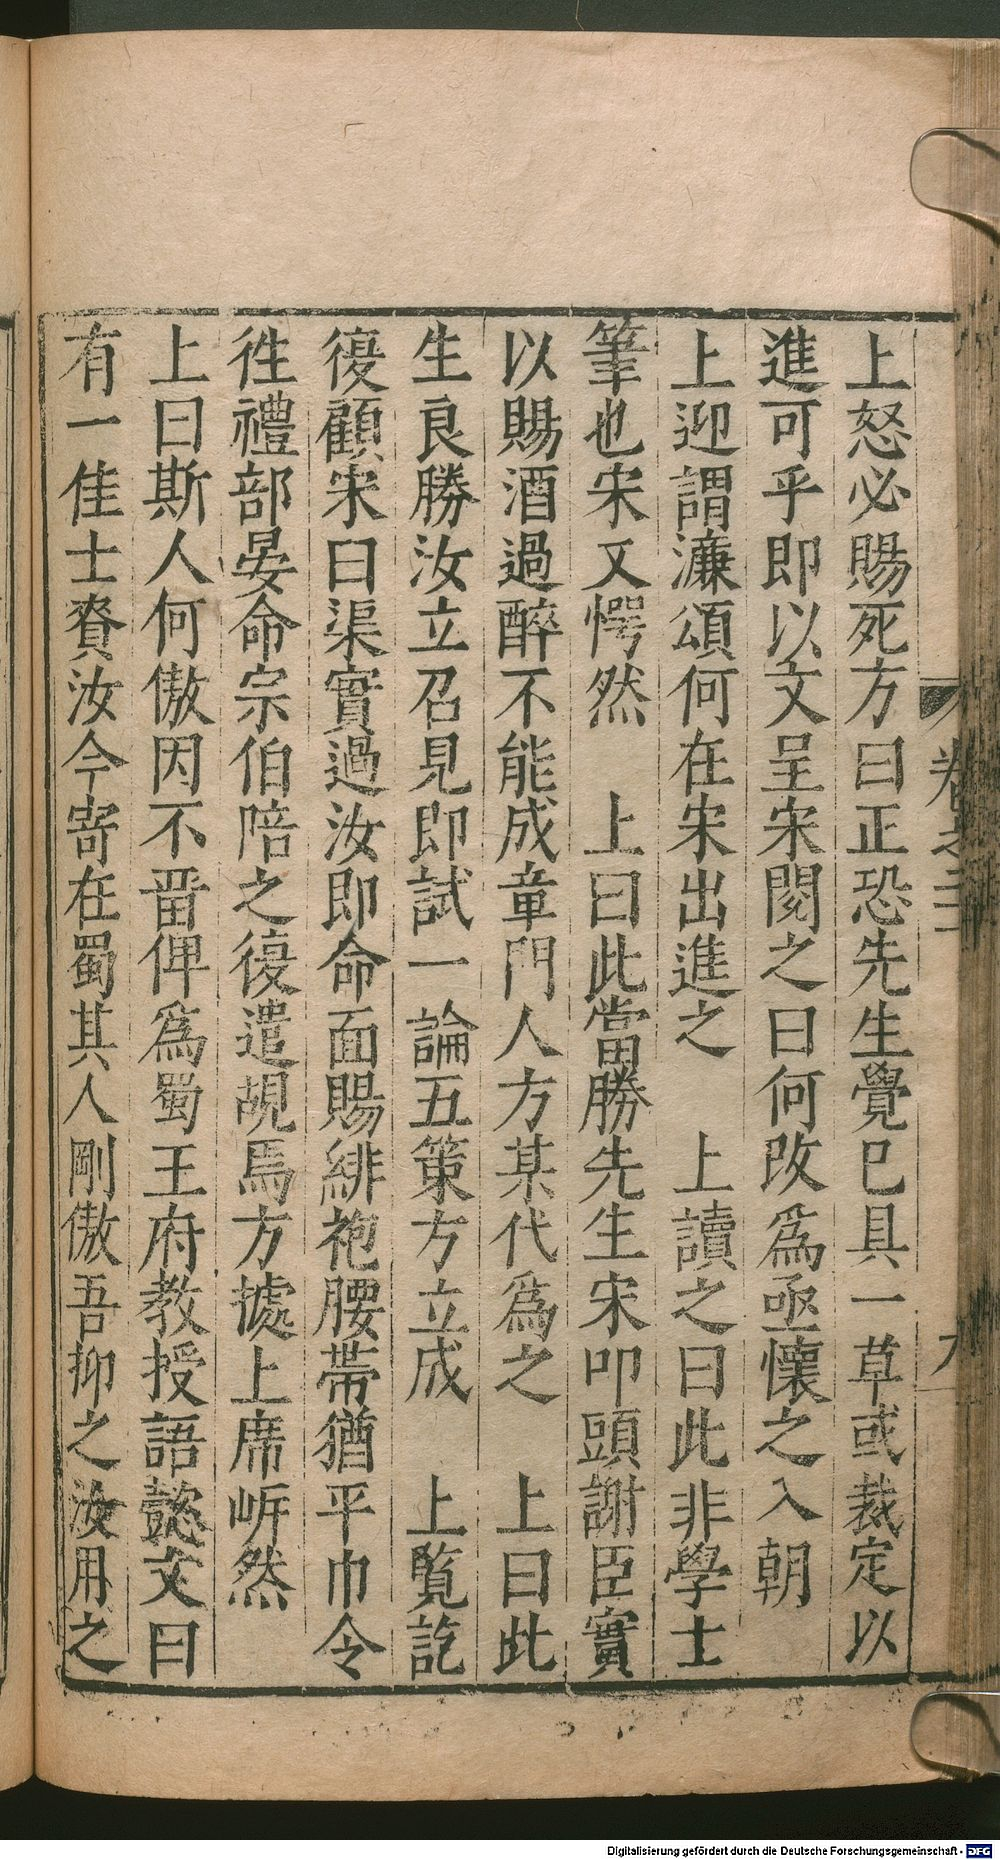 上怒必賜死方曰正恐先生覺已具一草或裁定以
進可乎即以文呈宋閱之曰何改爲亟懷之入朝
上迎謂濂頌何在宋出進之　上讀之曰此非學士
筆也宋又愕然　上曰此當勝先生宋叩頭謝臣實
以賜酒過醉不能成章門人方某代爲之　上曰此
生良勝汝立召見即試一論五策方立成　上覧訖
復顧宋曰渠實過汝即命面賜緋袍腰帶猶平巾令
徃禮部宴命宗伯陪之復遣覘焉方據上席岸然
上曰斯人何傲因不畱俾爲蜀王府教授語懿文曰
有一佳士賚汝今寄在蜀其人剛傲吾抑之汝用之
卷之二
九
Digitalisierung gefördert durch die Deutsche Forschungsgemeinschaft - DFG